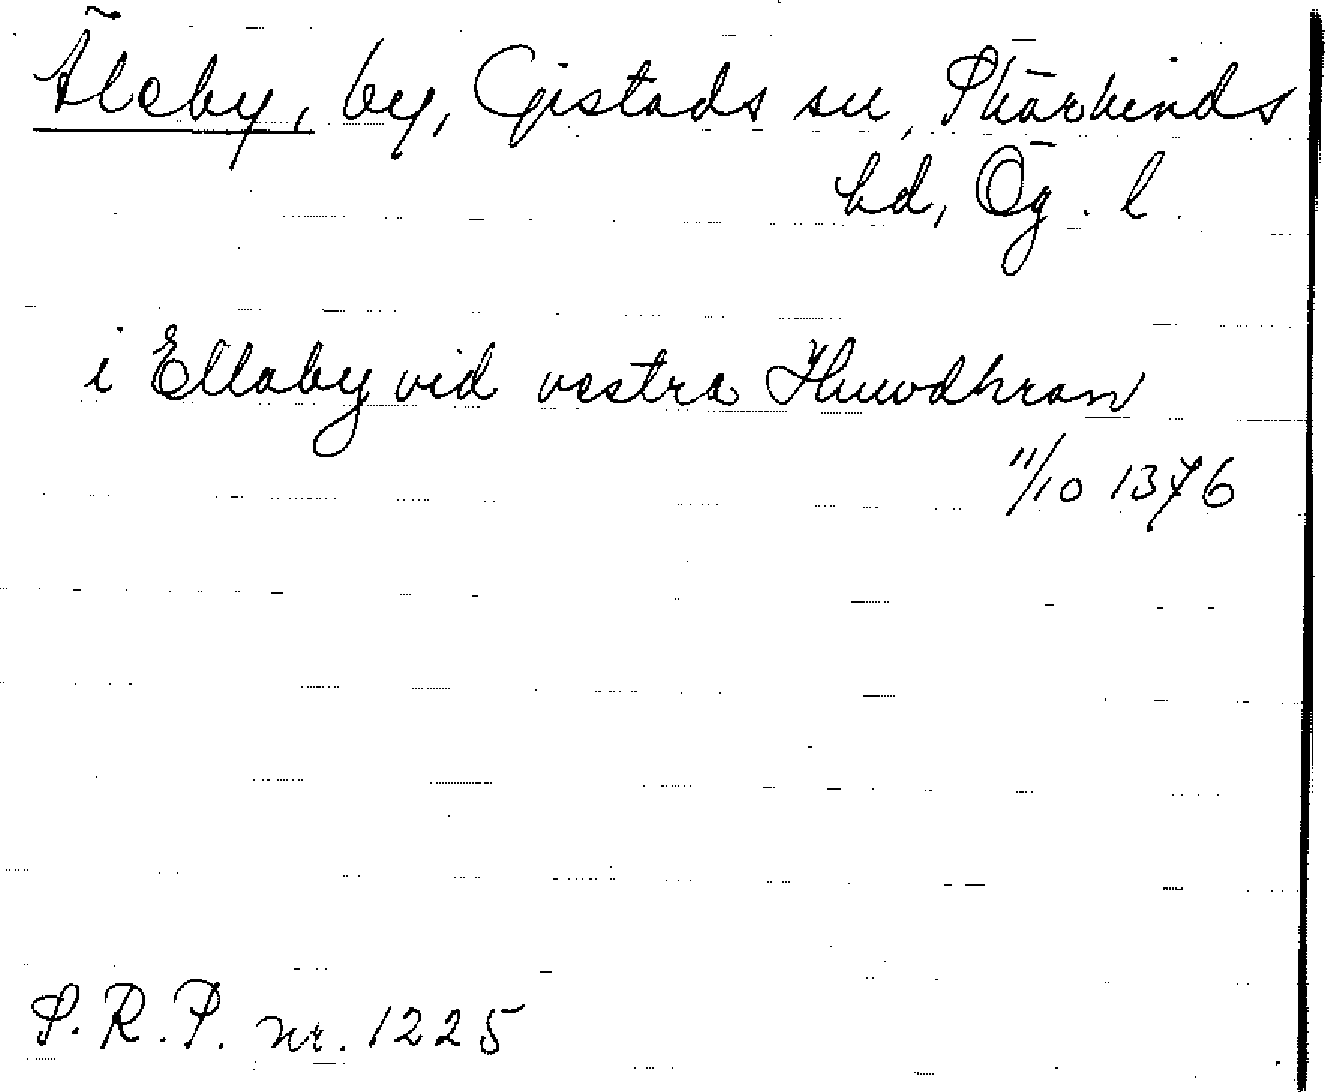 Älleby, by, Gistads sn, Skärkinds
hd, Ög. l.
i Ellaby vid vestra Huwdhran
11/10 1376
S.R.P. nr. 1225